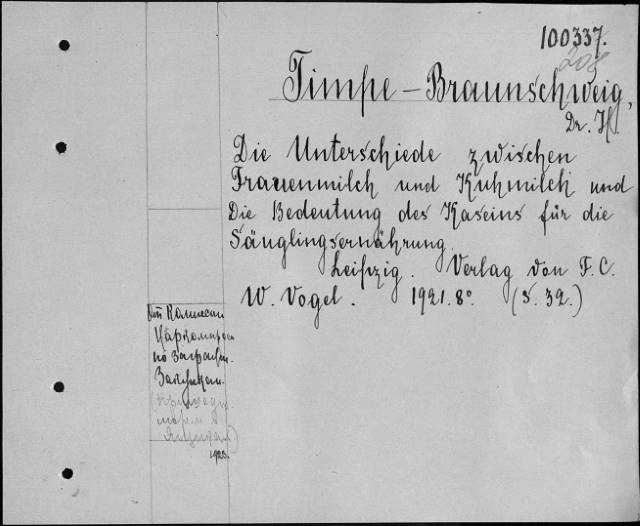 100337.
208
Timpe - Braunschweig,
Dr. H.
Die Unterschiede zwischen
Frauenmilch und Kuhmilch und
Die Bedeutung des Kaseins für die
Säuglingsernährung.
Leipzig. Verlag von F. C.
W. Vogel. 1921. 8° (S. 32.)
От
по
1923.